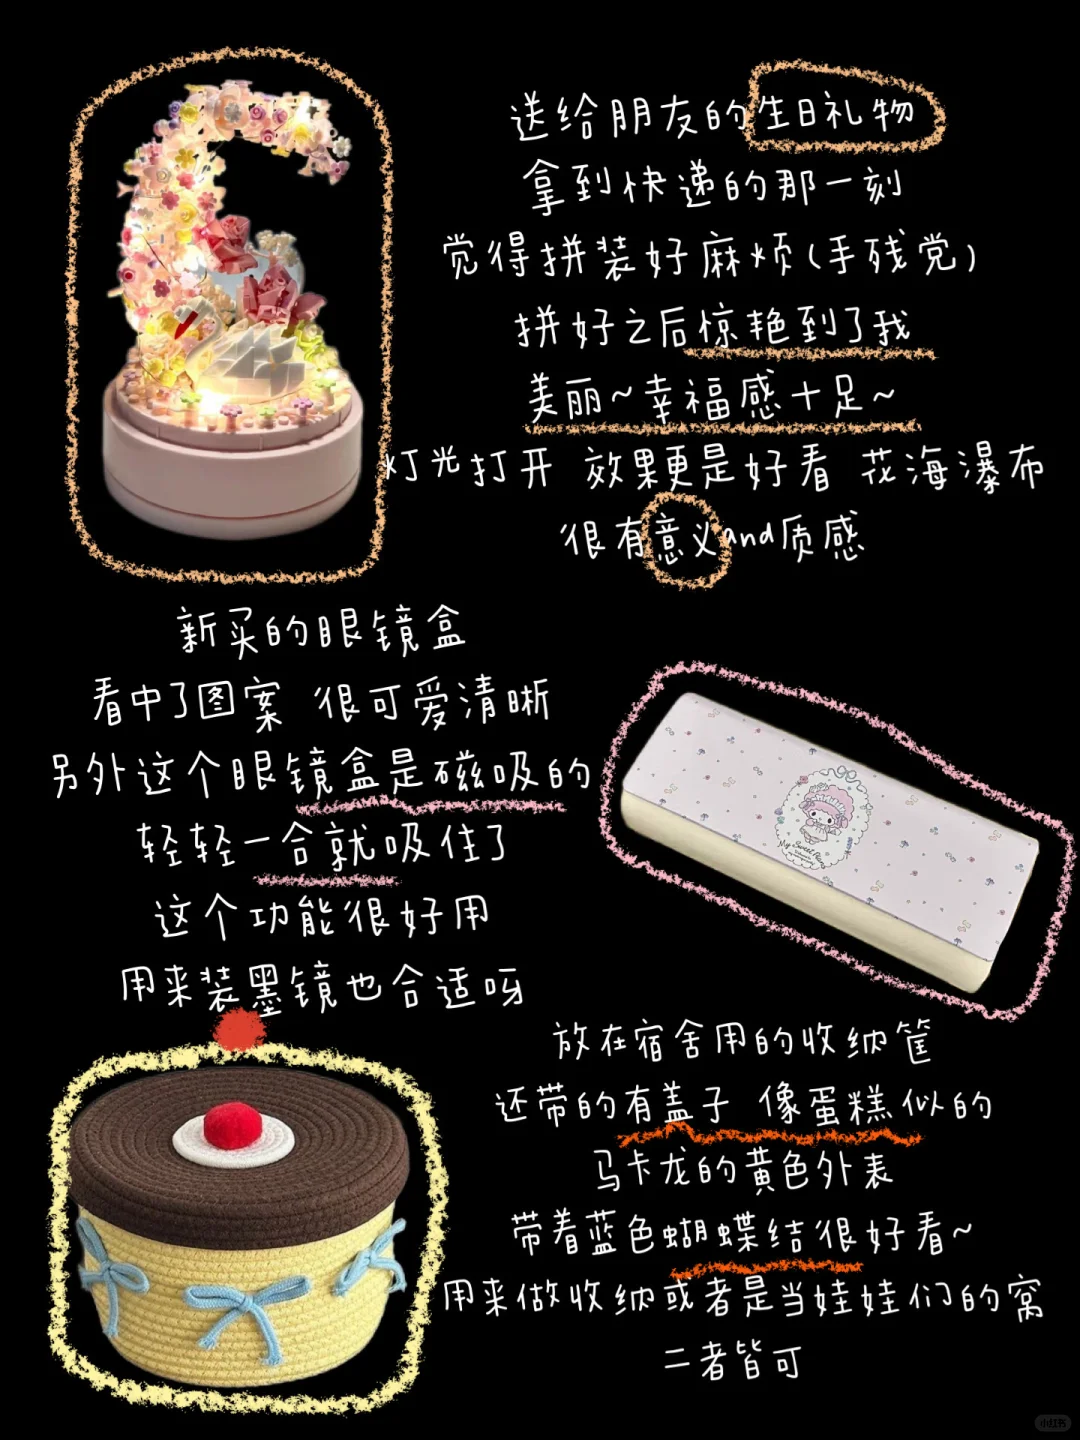 送给朋友的生日礼物
拿到快递的那一刻
觉得拼装好麻烦(手残党)
拼好之后惊艳到了我
美丽~幸福感十足~
灯光打开 效果更是好看 花海瀑布
很有意义and质感
新买的眼镜盒
看中了图案 很可爱清晰
另外这个眼镜盒是磁吸的
轻轻一合就吸住了
这个功能很好用
用来装墨镜也合适呀
My Sweet Piano
放在宿舍用的收纳筐
还带的有盖子 像蛋糕似的
马卡龙的黄色外表
带着蓝色蝴蝶结很好看~
用来做收纳或者是当娃娃们的窝
二者皆可
小红书